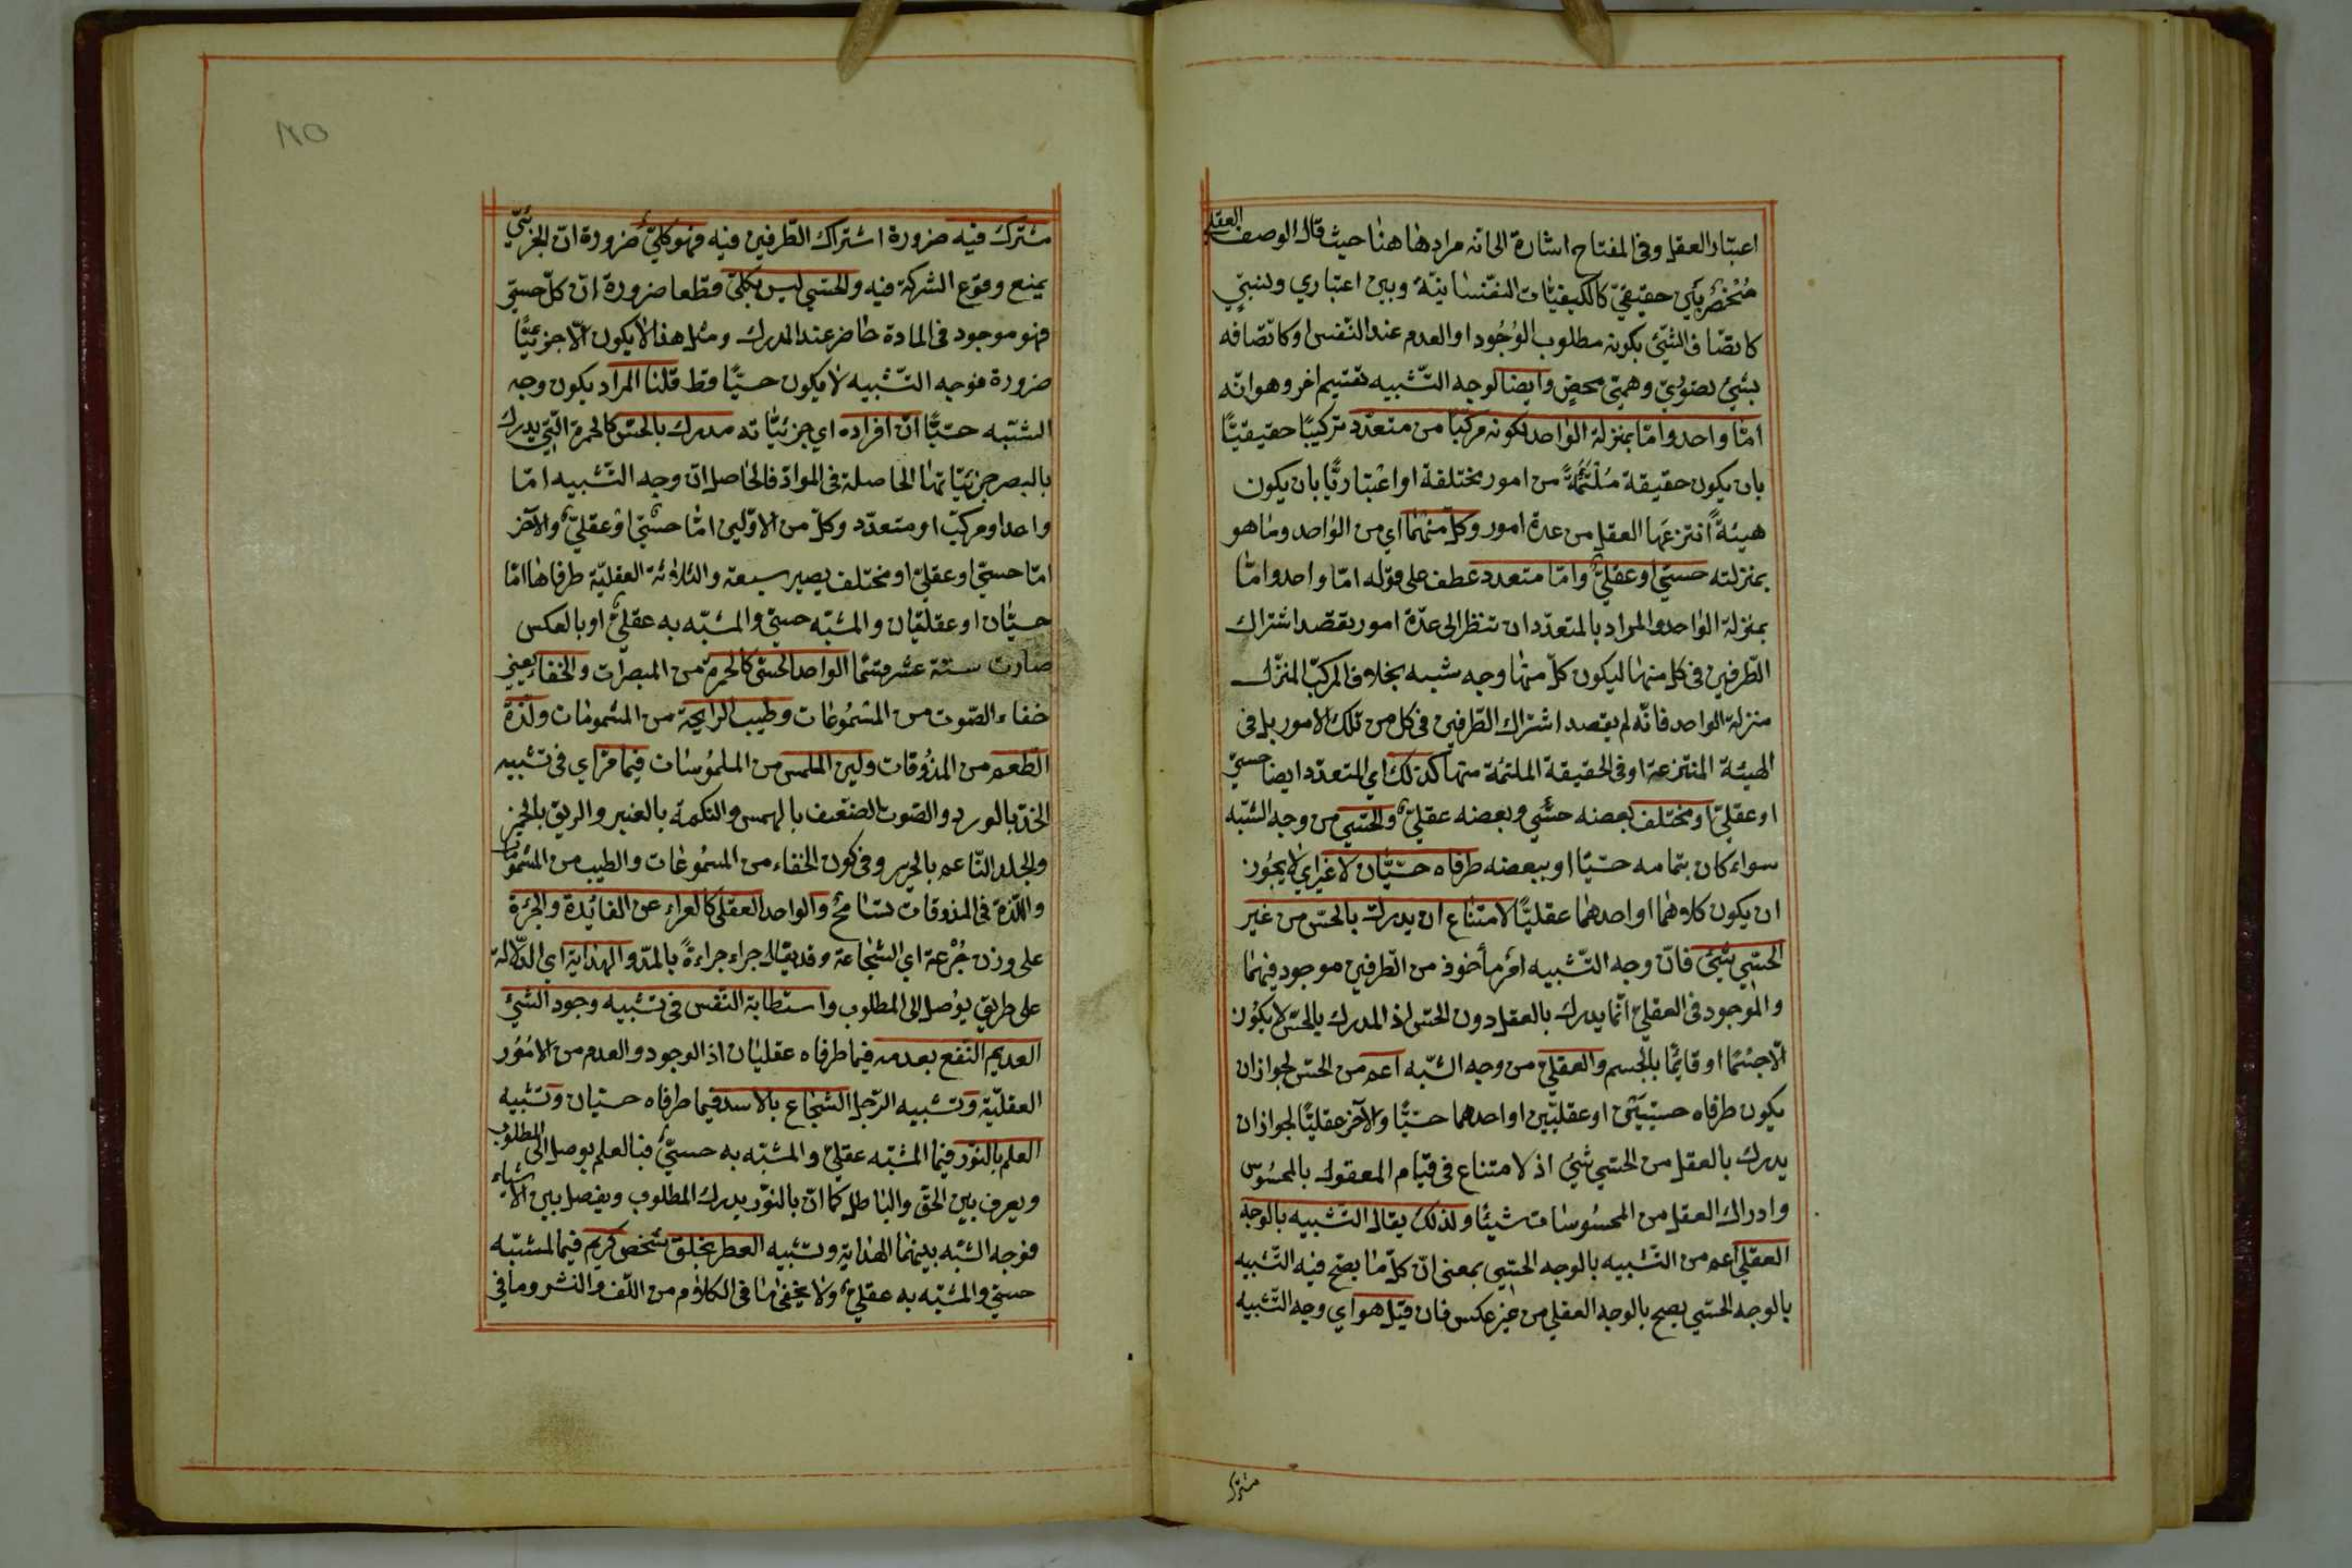 اعتبار العقل وفي المفتاح اشارة الى انه مرادها هنا حيث قال الوصف العقلي
مُنْحَصِرٌ بَيْن حقيقيّ كالكيفيّات النفسانيّة وبين اعتباري ونسبيّ
كاتّصاف الشّئ بكونه مطلوب الوُجُود او العدم عند النّفس او كاتّصافه
بشئ تصوّريّ وهميّ محض وايضا لوجه التّشبيه تقسيم اخر وهو انّه
امّا واحد وامّا بمنزلة الواحد لكونه مركبا من متعدّد تركيبًا حقيقيًّا
بان يكون حقيقة مُلْتَئِمَةً من امور مختلفة او اعتباريًّا بان يكون
هيئةً انتزعها العقل من عدة امور وكلّ منهما اي من الواحد وما هو
بمنزلته حسيّ او عقليّ وامّا متعدد عطف على قوله امّا واحد وامّا
بمنزلة الواحد والمراد بالمتعدّد ان تنظر الى عدّة امور يقصد اشتراك
الطّرفين في كل منها ليكون كلّ منها وجه شبه بخلاف المركّب المنزّل
منزلة الواحد فانّه لم يقصد اشتراك الطّرفين في كل من تلك الامور بل في
الهيئة المنتزعة او في الحقيقة الملتئمة منها كذلك اي المتعدّد ايضا حسيّ
او عقليّ او مختلف بعضه حسّي وبعضه عقليّ والحسّي من وجه الشّبه
سواء كان بتمامه حسّيّا او ببعضه طرفاه حسّيّان لا غير اي لا يجُوز
ان يكون كلاهما او احدهما عقليًّا لامتناع ان يدرك بالحسّ من غير
الحسّي شئ فانّ وجه التّشبيه امر مأخوذ من الطّرفين موجود فيهما
والموجود في العقليّ انّما يدرك بالعقل دون الحسّ اذ المدرك بالحسّ لا يكُون
الّا جسْمًا او قائمًا بالجسم والعقليّ من وجه الشّبه اعم من الحسّ لجواز ان
يكون طرفاه حسّيّين او عقليّين او احدهما حسّيًّا والآخر عقليًّا لجواز ان
يدرك بالعقل من الحسّي شئ اذ لا امتناع في قيام المعقول بالمحسُوس
وادراك العقل من المحسُوسات شيئًا ولذلك يقال التّشبيه بالوجه
العقلي اعم من التّشبيه بالوجه الحسّي بمعنى انّ كلّ ما يصحّ فيه التّشبيه
بالوجه الحسّي يصح بالوجه العقلي من غير عكس فان قيل هو اي وجه التّشبيه
مشترك
مشترك فيه ضرورة اشتراك الطّرفين فيه فهو كليّ ضرورة انّ الجزئيّ
يمنع وقوع الشركة فيه والحسّي ليس بكليّ قطعا ضرورة انّ كلّ حسيّ
فهو موجود في المادة حاضر عند المدرك ومثل هذا لا يكون الّا جزئيًّا
ضرورة فوجه التّشبيه لا يكون حسيًّا قط قلنا المراد بكون وجه
الشّبه حسّيًّا انّ افراده اي جزئيّاته مدرك بالحسّ كالحمرة الّتي يدرك
بالبصر جزئيّاتها الحاصلة في الموادّ فالحاصل انّ وجه التّشبيه امّا
واحد او مركّب او متعدّد وكلّ من الاوّلين امّا حسّيّ او عقليّ والآخر
امّا حسيّ او عقليّ او مختلف يصير سبعة والثلاثة العقليّة طرفاها امّا
حسيّان او عقليّان والمشبّه حسيّ والمشبّه به عقليّ او بالعكس
صارت ستّة عشر قسما الواحد الحسّي كالحمرة من المبصرات والخفاء يعني
خفاء الصّوت من المسمُوعات وطيب الرايحة من المشمومات ولذّة
الطّعم من المذُوقات ولين الملمس من الملمُوسات فيما مرّ اي في تشبيه
الخدّ بالورد والصّوت الضعيف بالهمس والنكهة بالعنبر والريق بالخمر
والجلد النّاعم بالحرير وفي كون الخفاء من المسمُوعات والطيب من المشمومات
واللّذة في المذوقات تسامح والواحد العقلي كالعراء عن الفائدة والجرءة
على وزن جُرْعة اي الشجاعة وقد يقال جراء جراءةً بالمدّ والهداية اي الدّلالة
على طريق يوُصل الى المطلوب واستطابة النّفس في تشبيه وجود الشّئ
العديم النّفع بعدمه فيما طرفاه عقليان اذ الوجود والعدم من الامُوُر
العقليّة وتشبيه الرّجل الشجاع بالاسد فيما طرفاه حسّيان وتشبيه
العلم بالنّور فيما المشبّه عقليّ والمشبّه به حسيّ فبالعلم يوصل الى المطلوب
ويعرف بين الحقّ والباطل كما انّ بالنّور يدرك المطلوب ويفصل بين الاشياء
فوجه الشّبه بينهما الهداية وتشبيه العطر بخلق شخص كريم فيما المشبّه
حسيّ والمشبّه به عقليّ ولا يخفى ما في الكلام من اللّف والنشر وما في